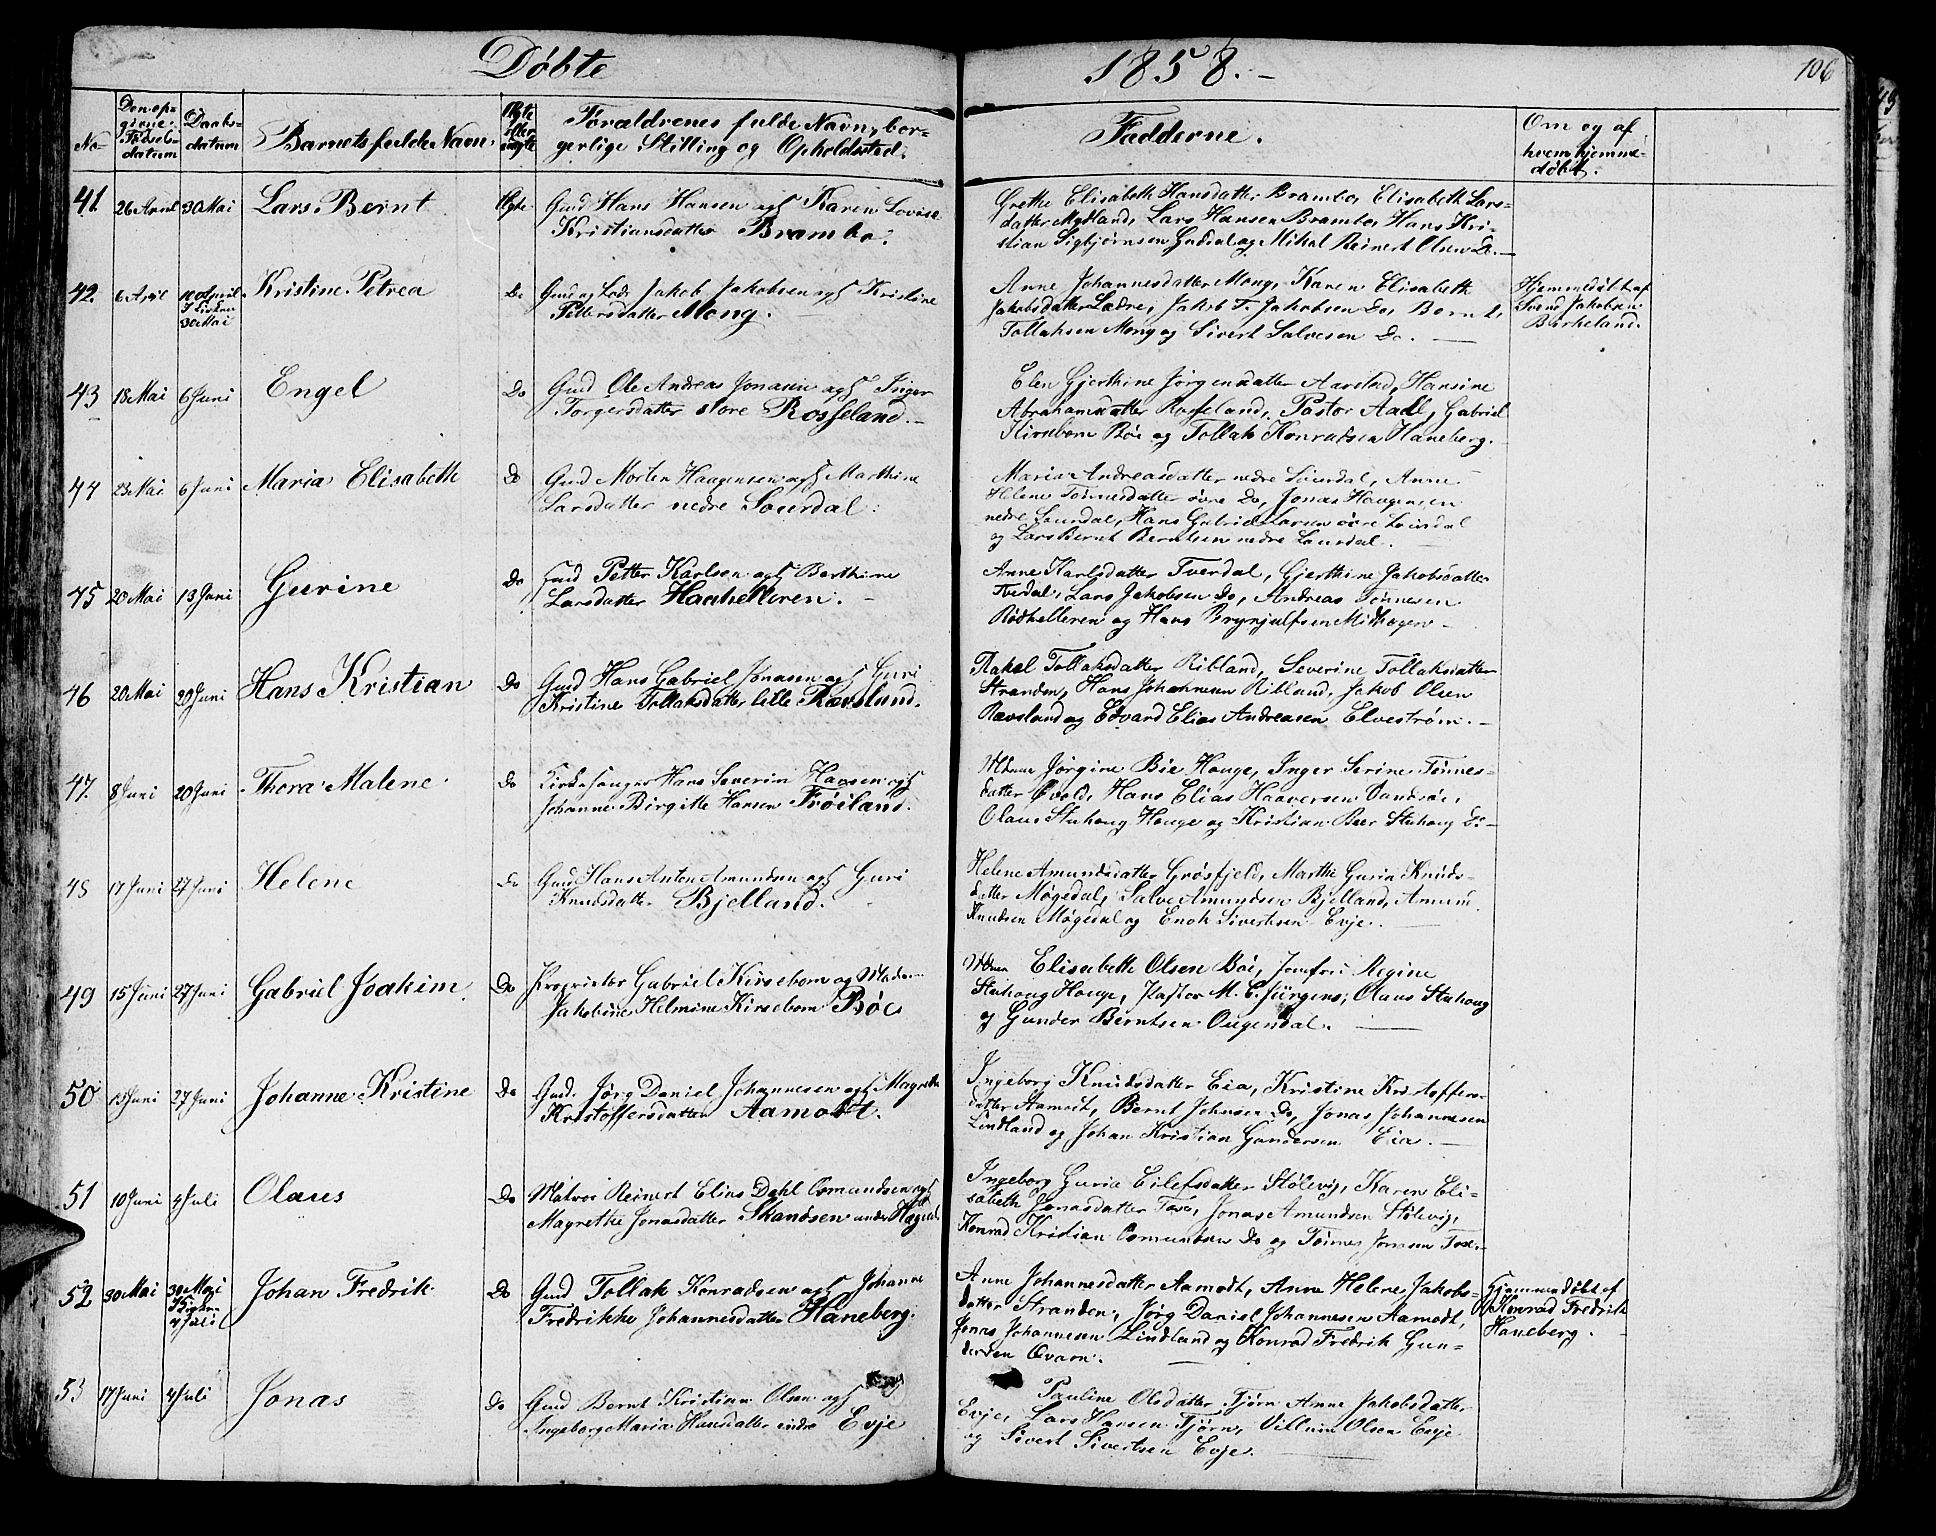 Døbte 1858.-
106
No
Den op-
givne
Fødsels-
datum
Daabs-
datum
Barnets fulde Navn.
Ægte
eller
uægte
Forældrenes fulde Navn, bor-
gerlige Stilling og Opholdssted.
Fadderne.
Om og af
hvem hjemme-
døbt.
41. 26 April 30 Mai Lars Bernt Ægte Gmd Hans Hansen og H Karen Lovise
Kristiansdatter Brambo.
Grethe Elisabeth Hansdatter Brambo, Elisabeth Lars-
datter Mydland, Lars Hansen Brambo, Hans Kri-
stian Sigbjørnsen og Mikal Reinert Olsen Do.-
42. 6 April 10 April
I Kirken
30 Mai
Kristine Petrea Do Gmd og Lods Jakob Jakobsen og H Kristine
Pettersdatter Mong.
Anne Johannesdatter Mong, Karen Elisabeth
Jakobsdatter Ladre, Jakob T. Jakobsen Do, Bernt
Tollaksen Mong og Sivert Salvesen Do.
Hjemmedøbt af
Svend Jakobsen
Birkeland.
43 18 Mai 6 Juni Engel Do Gmd Ole Andreas Jonasen og H Inger
Torgersdatter store Rosseland.-
Elen Gjerthine Jørgensdatter Aarstad, Hansine
Abrahamsdatter Rosseland, Pastor Aall, Gabriel
Kirsebom Bøe og Tollak Konradsen Haneberg.
44 23 Mai 6 Juni Maria Elisabeth Do Gmd Morten Haagensen og H Marthine
Larsdatter nedre Lourdal.
Maria Andreasdatter nedre Lourdal, Anne
Helene Tønnesdatter øvre Do, Jonas Haagensen
nedre Lourdal, Hans Gabriel Larsen øvre Lourdal
og Lars Bernt Berntsen nedre Lourdal.
45 20 Mai 13 Juni Gurine Do Gmd Petter Karlsen og H Berthine
Larsdatter Haahelleren.-
Anne Karlsdatter Tverdal, Gjerthine Jakobsdatter
Lars Jakobsen Do, Andreas Tønnesen
Rødhelleren og Hans Brynjulfsen Midhogen-
46 20 Mai 20 Juni Hans Kristian Do Gmd Hans Gabriel Jonasen og H Guri
Kristine Tollaksdatter lille Rævsland.
Rakel Tollaksdatter Ribland, Severine Tollaksdatter
Stranden, Hans Johannesen Ribland, Jakob Olsen
Rævsland og Edvard Elias Andreasen Elvestrøm.-
47. 8 Juni 20 Juni Thora Malene Do Kirkesanger Hans Severin Hansen og H
Johanne Birgitte Hansen Frøiland.
Mdme Jørgine Bie Houge, Inger Serine Tønnes-
datter Hans Elias Haaversen
Olaus Stuhoug Houge og Kristian Beer Stuhoug Do-
48 17 Juni 27 Juni Helene Do Gmd Hans Anton Amundsen og H Guri
Knudsdatter Bjelland.
Helene Amundsdatter Grøsfjeld, Marthe Guria Knuds-
datter Møgedal, Salve Amundsen Bjelland, Amund
Knudsen Møgedal og Enok Sivertsen Evje.
49 15 Juni 27 Juni Gabriel Joakim Do Proprietær Gabriel Kirsebom og Madame
Jakobine Helmine Kirsebom Bøe
Mdme Elisabeth Olsen Bøe, Jomfru Regine
Stuhoug Houge, Pastor M. C. Jürgens, Olaus Stuhoug
og Gunder Berntsen Ougendal.
50 13 Juni 27 Juni Johanne Kristine Do Gmd. Jørg Daniel Johannesen og H Magrethe
Kristoffersdatter Aamodt.
Ingeborg Knudsdatter Eia, Kristine Kristoffers-
datter Aamodt, Bernt Johnsen Do, Jonas Johannesen
Lindland og Johan Kristian Gundersen Eia.
51 10 Juni 4 Juli Olaus Do Matros Reinert Elias Dahl Osmundsen og H
Magrethe Jonasdatter Skandsen under Hegdal
Ingeborg Guria Eilefsdatter Stølevig, Karen Eli-
sabeth Jonasdatter Tose, Jonas Amundsen Stølevig,
Konrad Kristian Osmundsen Do og Tønnes Jonsen Tose.
52 30 Mai 30 Mai
I Kirken
4 Juli
Johan Fredrik Do Gmd Tollak Konradsen og H Johanne
Fredrikke Johannesdatter Haneberg.
Anne Johannesdatter Aamodt, Anne Helene Jakobs-
datter Stranden, Jørg Daniel Johannesen Aamodt,
Jonas Johannesen Lindland og Konrad Fredrik Gun-
dersen Qvam.
Hjemmedøbt af
Konrad Fredrik
Haneberg.
53 17 Juni 4 Juli Jonas Do Gmd Bernt Kristian Olsen og H
Ingeborg Maria Hansdatter indre Evje
Pauline Olsdatter Tjørn, Anne Jakobsdatter
Evje, Lars Hansen Tjørn, Villum Olsen Evje
og Sivert Sivertsen Evje.